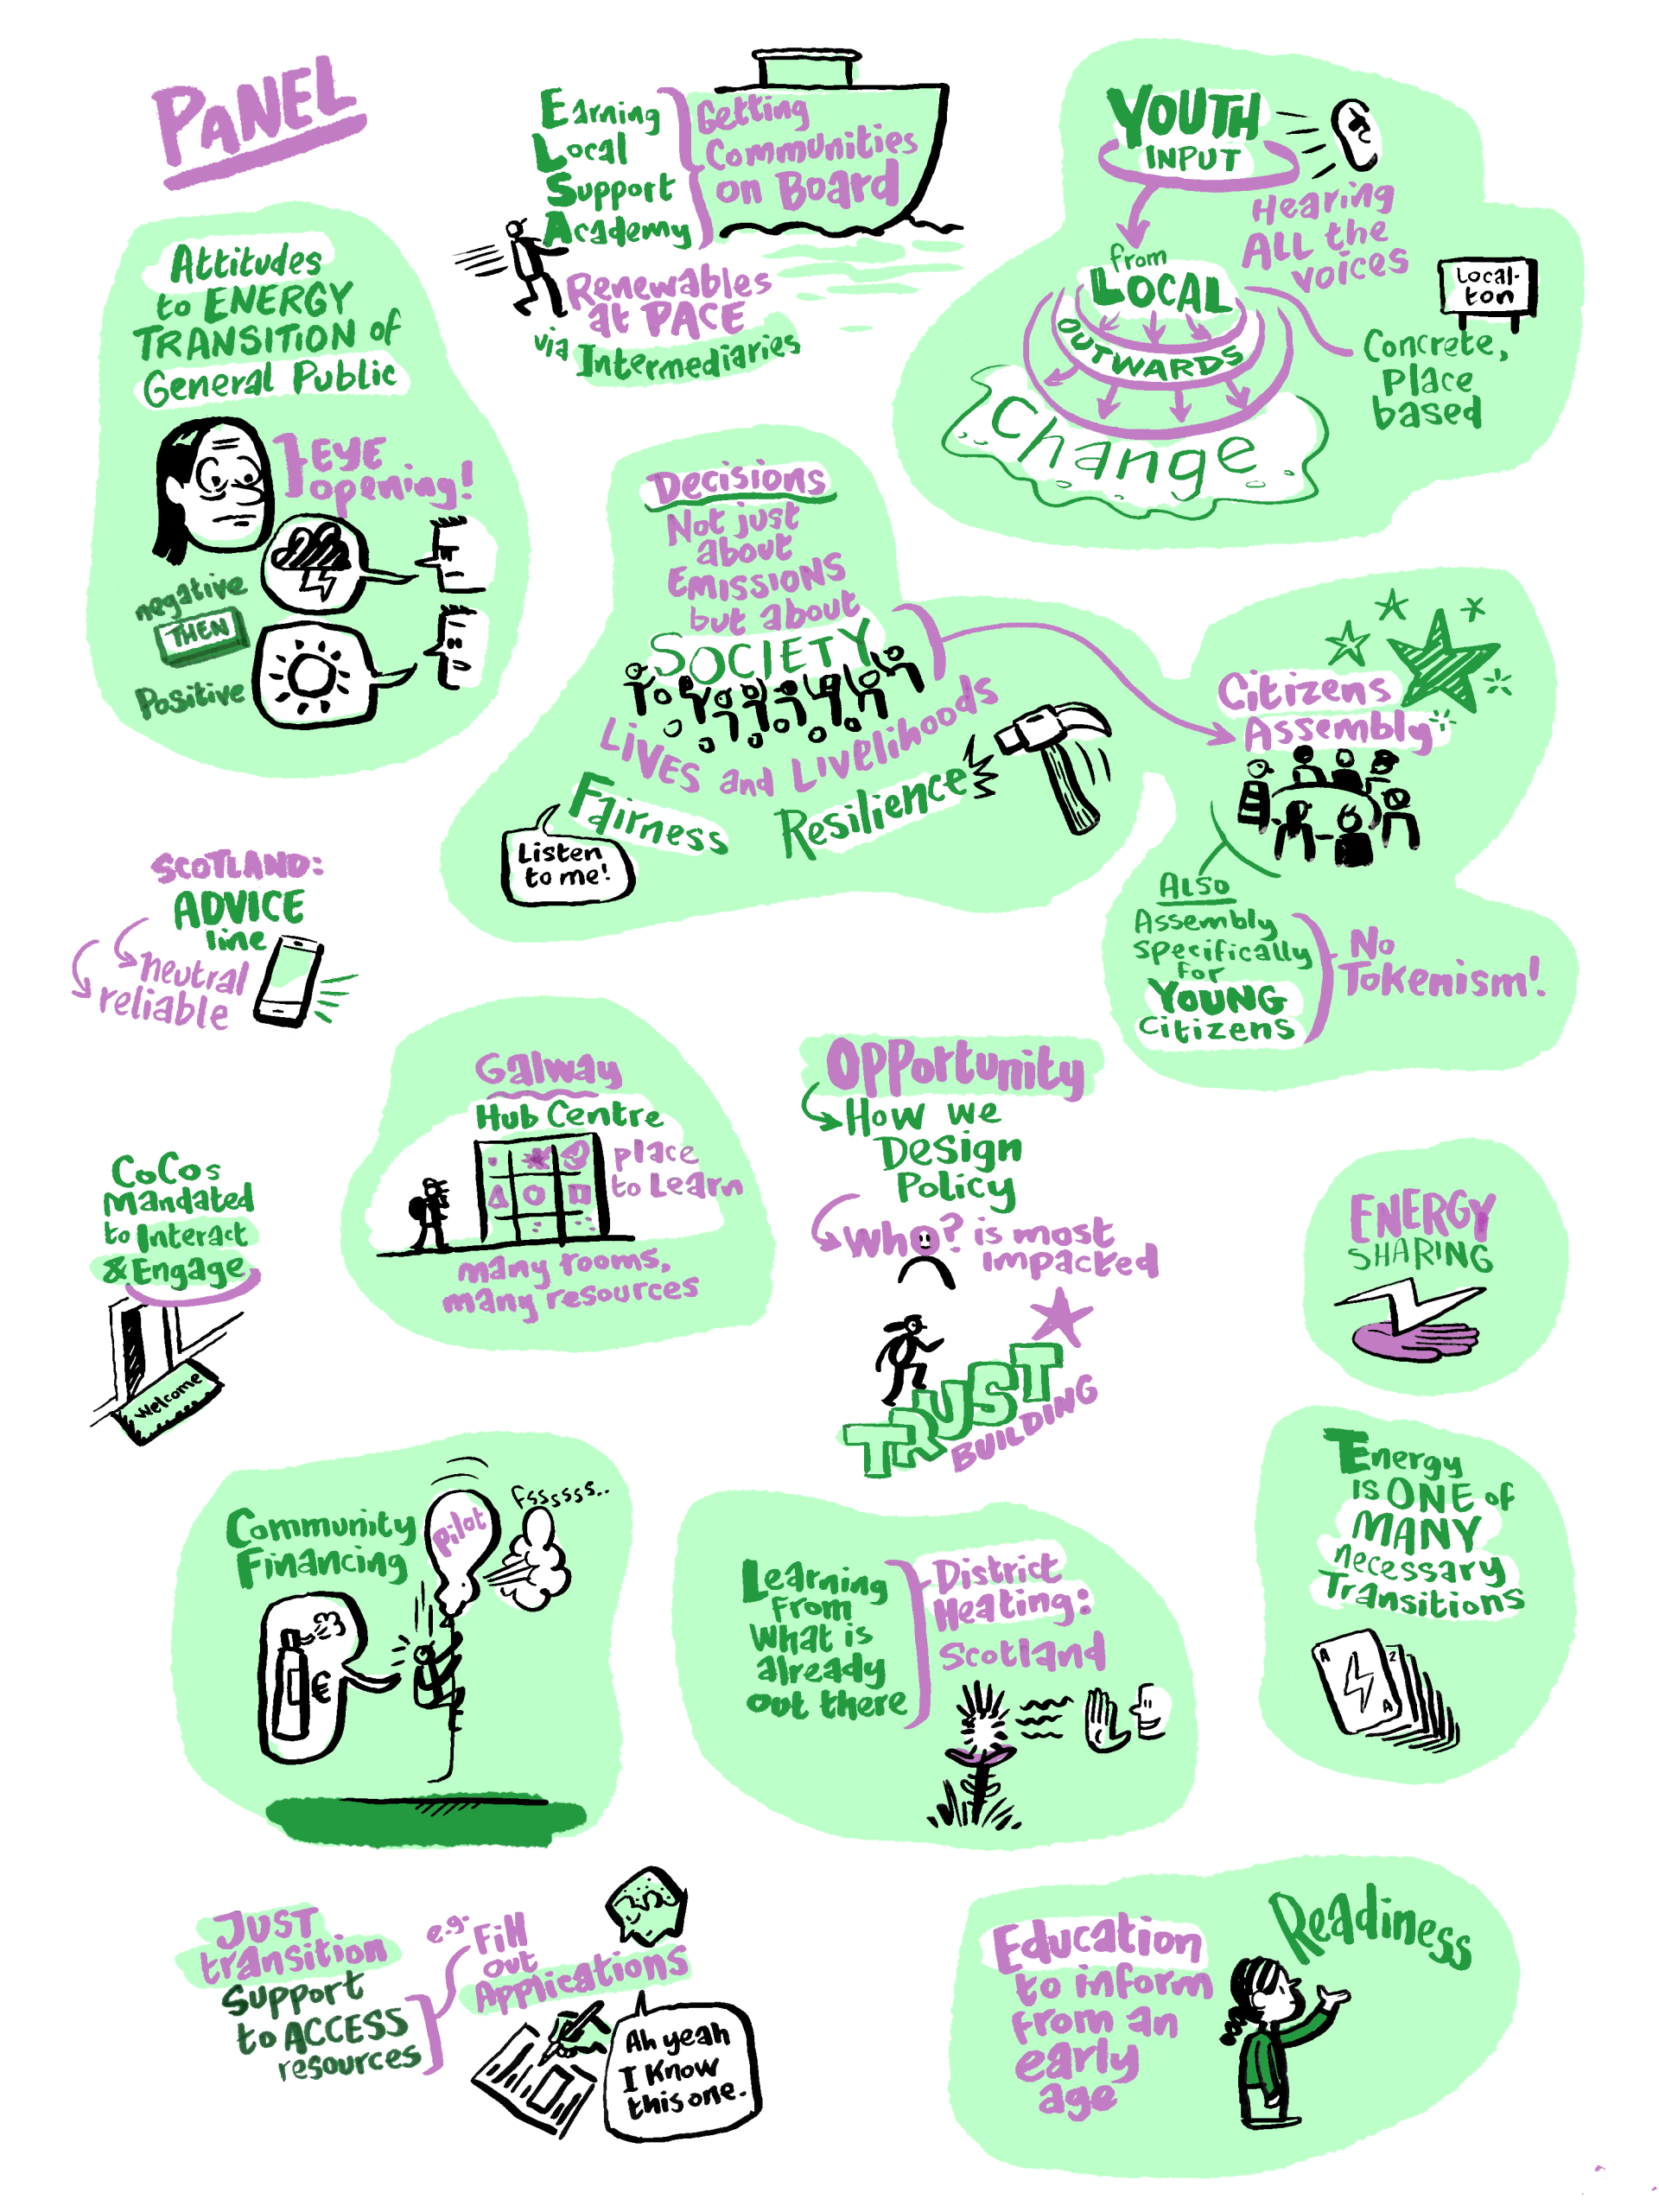 PANEL
Earning
Local
Support
Academy
Getting
Communities
on Board
Renewables
at PACE
via Intermediaries
YOUTH
INPUT
Hearing
ALL the
voices
from
LOCAL
OUTWARDS
Change
Local-
ton
Concrete,
Place
based
Attitudes
to ENERGY
TRANSITION of
General Public
EYE
opening!
negative
THEN
Positive
Decisions
Not just
about
EMISSIONS
but about
SOCIETY
LIVES and Livelihoods
Fairness
Resilience
Listen
to me!
Citizens
Assembly
ALSO
Assembly
specifically
for
YOUNG
Citizens
No
Tokenism!
SCOTLAND:
ADVICE
line
neutral
reliable
Galway
Hub Centre
place
to Learn
many rooms,
many resources
Opportunity
How we
Design
Policy
Who? is most
impacted
TRUST
BUILDING
CoCos
Mandated
to Interact
& Engage
Welcome
ENERGY
SHARING
Community
Financing
Pilot
Fssssss..
€
Learning
From
What is
already
out there
District
Heating:
Scotland
Energy
IS ONE of
MANY
necessary
Transitions
A
2
A
JUST
transition
Support
to ACCESS
resources
e.g. Fill
out
Applications
Ah yeah
I Know
this one.
Education
to inform
from an
early
age
Readiness